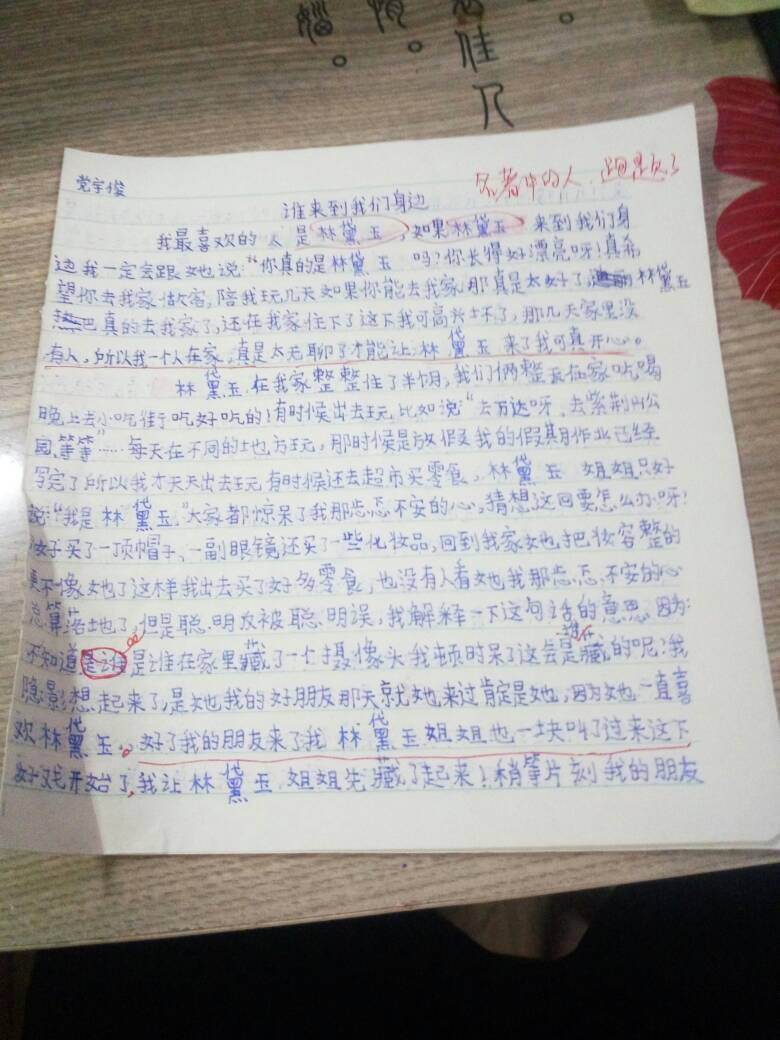 佳人
党宇俊
名著中的人
谁来到我们身边
我最喜欢的人是林黛玉,如果林黛玉来到我们身
边我一定会跟她说:“你真的是林黛玉吗?你长得好漂亮呀!真希
望你去我家做客,陪我玩几天如果你能去我家那真是太好了,林黛玉
真的去我家了,还在我家住下了这下我可高兴坏了,那几天家里没
有人,所以我一个人在家,真是太无聊了才能让林黛玉来了我可真开心。
林黛玉在我家整整住了半个月,我们俩整天在家吃喝
晚上去小吃街吃好吃的!有时候出去玩,比如说:“去万达呀、去紫荆山公
园等等”……每天在不同的地方玩,那时候是放假我的假期作业已经
写完了所以我才天天出去玩有时候还去超市买零食,林黛玉姐姐只好
说:“我是林黛玉”大家都惊呆了我那忐忑不安的心,猜想这回要怎么办呀!
好买了一顶帽子,一副眼镜还买了一些化妆品,回到我家她把妆容整的
更不像她了这样我出去买了好多零食,也没有人看她我那忐忑不安的心
总算落地了,但是聪明反被聪明误,我解释一下这句话的意思,因为:
不知道是谁是谁在家里藏了一个摄像头我顿时呆了这会是谁藏的呢?我
隐影想起来了,是她我的好朋友那天就她来过肯定是她,因为她一直喜
欢林黛玉。好了我的朋友来了我林黛玉姐姐也一块叫了过来这下
好戏开始了,我让林黛玉姐姐先藏了起来!稍等片刻我的朋友